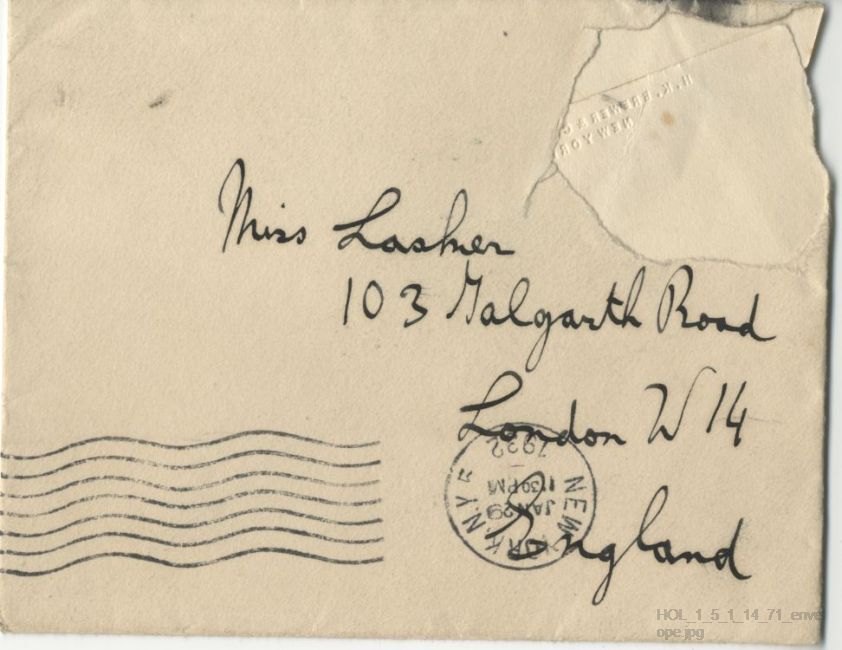 H.K. BREWER & C
NEW YOR
Miss Lashner
103 Talgarth Road
London W 14
England
NEW YORK, N.Y.
JAN 29
11 30 PM
1932
HOL_1_5_1_14_71_envel
ope.jpg